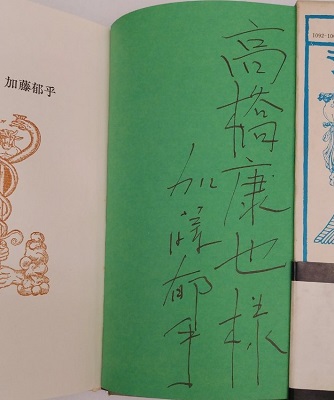 高橋康也様
加藤郁乎
加藤郁乎